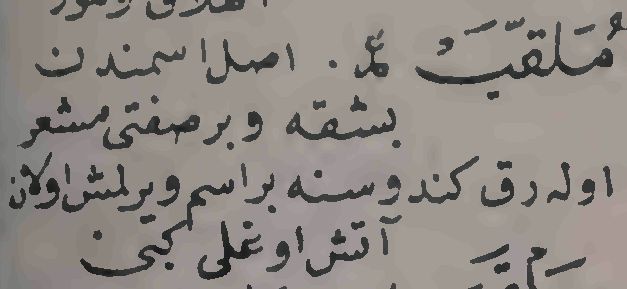 مُلَقَّبْ عر. اصل اسمندن
بشقه وبر صفتى مشعر
اوله رق كندوسنه بر اسم ويرلمش اولان
آتش اوغلى كبى